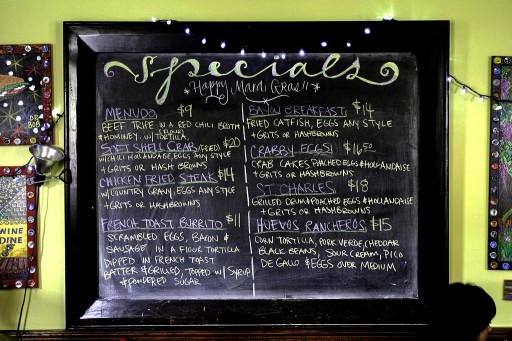 Specials
Happy Mardi Gras!!
MENUDO $9
BEEF TRIPE IN A RED CHILI BROTH
HOMINEY, w/ TORTILLA
SOFT SHELL CRAB (FRIED) $20
W/ CHILI HOLLANDAISE, EGGS ANY STYLE
+ GRITS OR HASH BROWNS
CHICKEN FRIED STEAK $14
W/ COUNTRY GRAVY, EGGS ANY STYLE
+ GRITS OR HASHBROWNS
FRENCH TOAST BURRITO $11
SCRAMBLED EGGS, BACON &
SAUSAGE IN A FLOUR TORTILLA
DIPPED IN FRENCH TOAST
BATTER & GRILLED, TOPPED w/ SYRUP
& POWDERED SUGAR
BAYOU BREAKFAST $14
FRIED CATFISH, EGGS ANY STYLE
+ GRITS OR HASHBROWNS
CRABBY EGGS! $16.50
CRAB CAKES, POACHED EGGS & HOLLANDAISE
+ GRITS OR HASHBROWNS
ST. CHARLES $18
GRILLED DRUM & POACHED EGGS & HOLLANDAISE
+ GRITS OR HASHBROWNS
HUEVOS RANCHEROS $15
CORN TORTILLA, PORK VERDE, CHEDDAR
BLACK BEANS, SOUR CREAM, PICO
DE GALLO & EGGS OVER MEDIUM
WINE
DINE